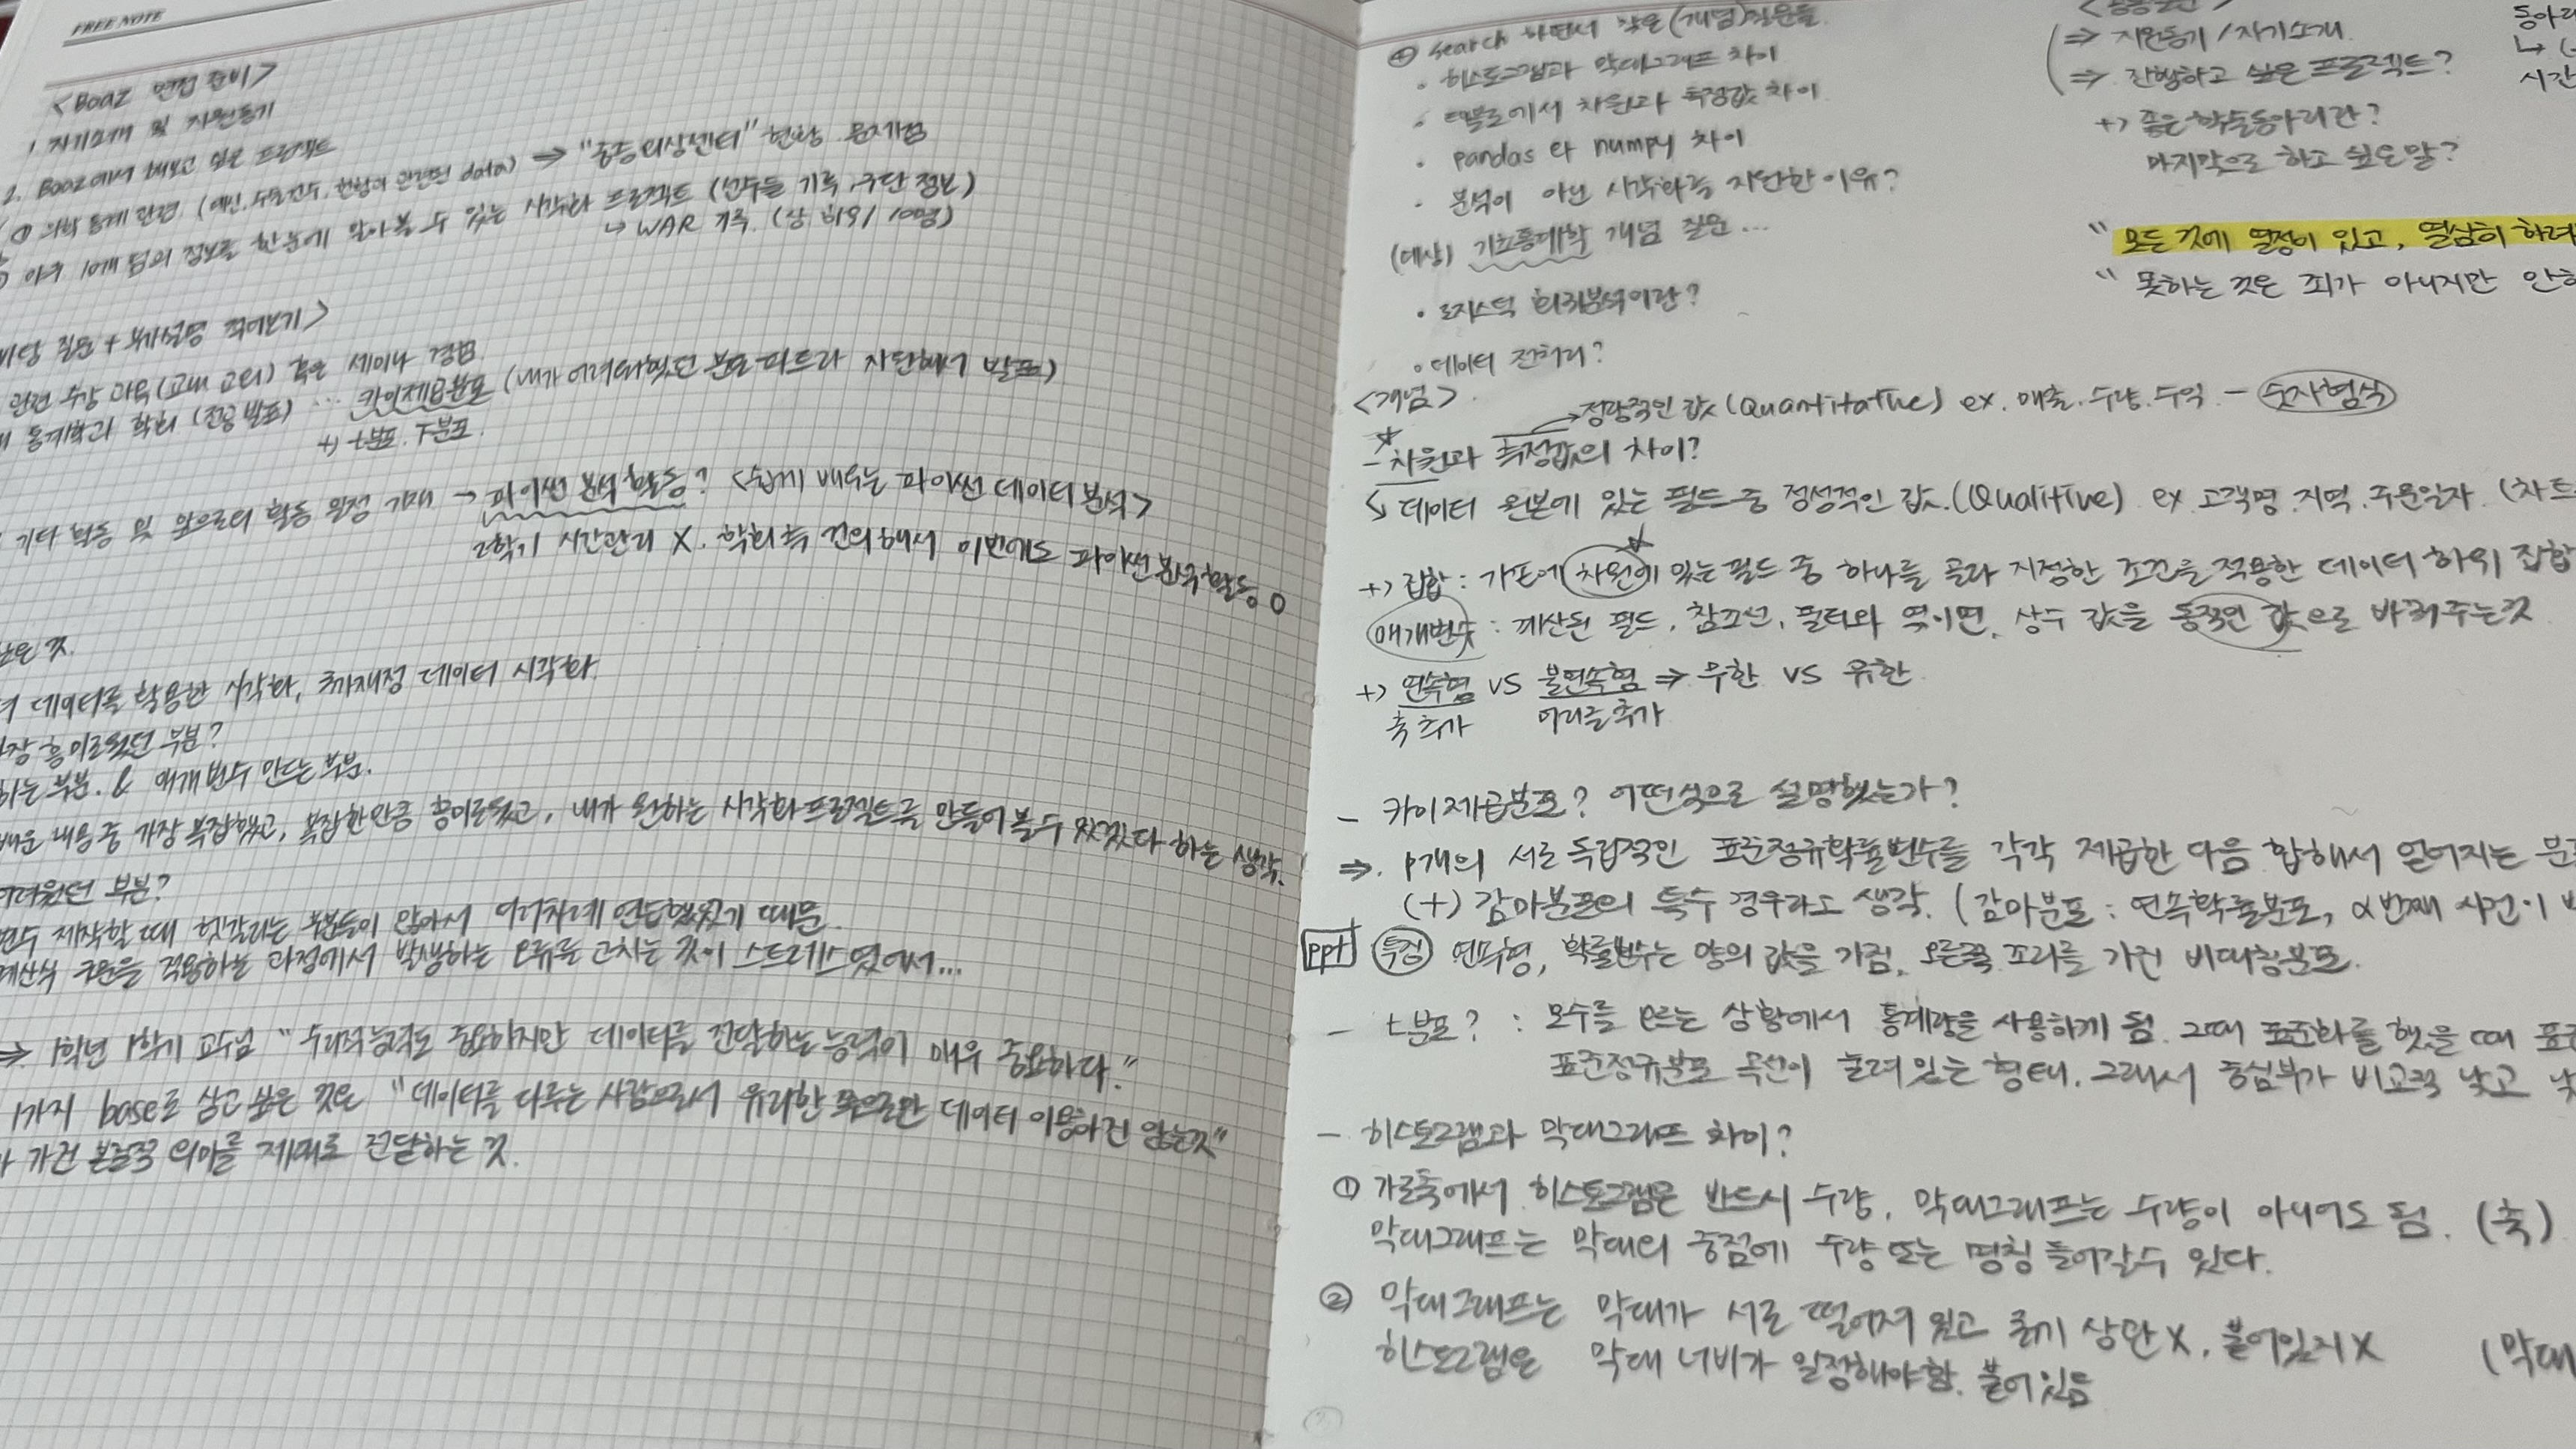 FREE NOTE
<Boaz 면접 준비>
1. 자기소개 및 지원동기
2. Boaz에서 해보고 싶은 프로젝트
① 의학 통계 관련 (예산, 수요건수, 현황과 관련된 data) ⇒ "중증외상센터" 현황 문제점
야구 10개 팀의 정보를 한눈에 알아볼 수 있는 시각화 프로젝트 (선수들 기록, 구단 정보)
↳ WAR 기록 (상 하위 10명)
질문 + 부가설명 적어보기>
관련 수강 과목(교내 교외) 혹은 세미나 경험
통계학과 학회 (전공 발표) … 카이제곱분포 (내가 어려워했던 분포 파트라 자진해서 발표)
+) t분포. F분포.
기타 활동 및 앞으로의 활동 일정 기재 → 파이썬 분석 활동? <쉽게 배우는 파이썬 데이터 분석>
2학기 시간관리 X. 학회 측 건의해서 이번에도 파이썬 분석 활동 O
것.
데이터를 활용한 시각화, 국가재정 데이터 시각화
흥미로웠던 부분?
하는 부분. & 매개변수 만드는 부분.
배운 내용 중 가장 복잡했고, 복잡한 만큼 흥미로웠고, 내가 원하는 시각화 프로젝트를 만들어 볼 수 있겠다 하는 생각.
어려웠던 부분?
변수 제작할 때 헷갈리는 부분들이 많아서 여러차례 연습했었기 때문
계산식 구문을 적용하는 과정에서 발생하는 오류를 고치는 것이 스트레스였어서...
⇒ 1학년 1학기 교수님 "수리적능력도 중요하지만 데이터를 전달하는 능력이 매우 중요하다."
1가지 base로 삼고 싶은 것은 "데이터를 다루는 사람으로서 유리한 쪽으로만 데이터 이용하진 않는것"
가 가진 본질적 의미를 제대로 전달하는 것.
⊕ search 하면서 찾은 (개념)질문들
· 히스토그램과 막대그래프 차이
· 태블로에서 차원과 측정값 차이
· pandas 와 numpy 차이
· 분석이 아닌 시각화를 지원한 이유?
(예상) 기초통계학 개념 질문...
· 로지스틱 회귀분석이란?
· 데이터 전처리?
⇒ 지원동기 / 자기소개
⇒ 진행하고 싶은 프로젝트?
+) 좋은 학술동아리란?
마지막으로 하고 싶은말?
동아리
시간
" 모든 것에 열정이 있고, 열심히 하려
" 못하는 것은 죄가 아니지만 안하
<개념>
→ 정량적인 값 (Quantitative) ex. 매출. 수량. 수익 - 숫자형식
- 차원과 측정값의 차이?
↳ 데이터 원본에 있는 필드 중 정성적인 값.(Qualitive) ex 고객명. 지역. 주문일자 (차트
+) 집합 : 기존에 차원에 있는 필드 중 하나를 골라 지정한 조건을 적용한 데이터 하위 집합
매개변수 : 계산된 필드, 참조선, 필터와 엮이면, 상수 값을 동적인 값으로 바꿔주는것
+) 연속형 vs 불연속형 ⇒ 무한 vs 유한
축 추가 머리글 추가
- 카이제곱분포? 어떤식으로 설명했는가?
⇒. p개의 서로 독립적인 표준정규확률변수를 각각 제곱한 다음 합해서 얻어지는 분
(+) 감마분포의 특수 경우라고 생각. (감마분포 : 연속확률분포, α번째 사건이
ppt 특징 연속형, 확률변수는 양의 값을 가짐, 오른쪽 꼬리를 가진 비대칭분포.
- t분포? : 모수를 모르는 상황에서 통계량을 사용하게 됨. 그때 표준화를 했을 때 표준
표준정규분포 곡선이 눌려있는 형태. 그래서 중심부가 비교적 낮고
- 히스토그램과 막대그래프 차이?
① 가로축에서 히스토그램은 반드시 수량, 막대그래프는 수량이 아니어도 됨. (축)
막대그래프는 막대의 중점에 수량 또는 명칭 들어갈 수 있다.
② 막대그래프는 막대가 서로 떨어져 있고 굵기 상관 X, 붙어있지 X (막대
히스토그램은 막대 너비가 일정해야 함. 붙어있음